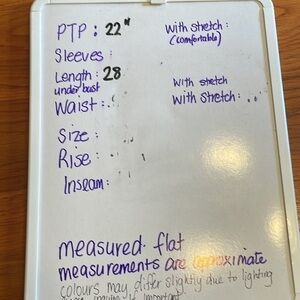 PTP : 22" With stretch :
(comfortable)
Sleeves :
Length : 28
under bust With stretch
Waist : With stretch :
Size :
Rise :
Inseam :
measured flat
measurements are approximate
colours may differ slightly due to lighting
if important